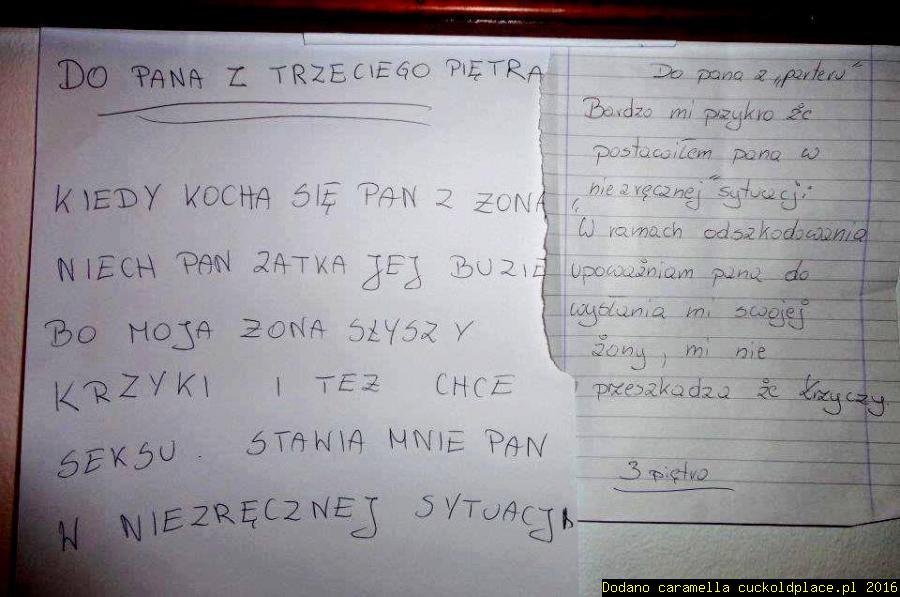 DO PANA Z TRZECIEGO PIĘTRA
KIEDY KOCHA SIĘ PAN Z ZONĄ
NIECH PAN ZATKA JEJ BUZIE
BO MOJA ZONA SŁYSZY
KRZYKI I TEZ CHCE
SEKSU. STAWIA MNIE PAN
W NIEZRĘCZNEJ SYTUACJI
Do pana z „parteru"
Bardzo mi przykro że
postawiłem pana w
„niezręcznej" sytuacji.
W ramach odszkodowania
upoważniam pana do
wysłania mi swojej
żony, mi nie
przeszkadza że krzyczy.
3 piętro
Dodano caramella cuckoldplace.pl 2016